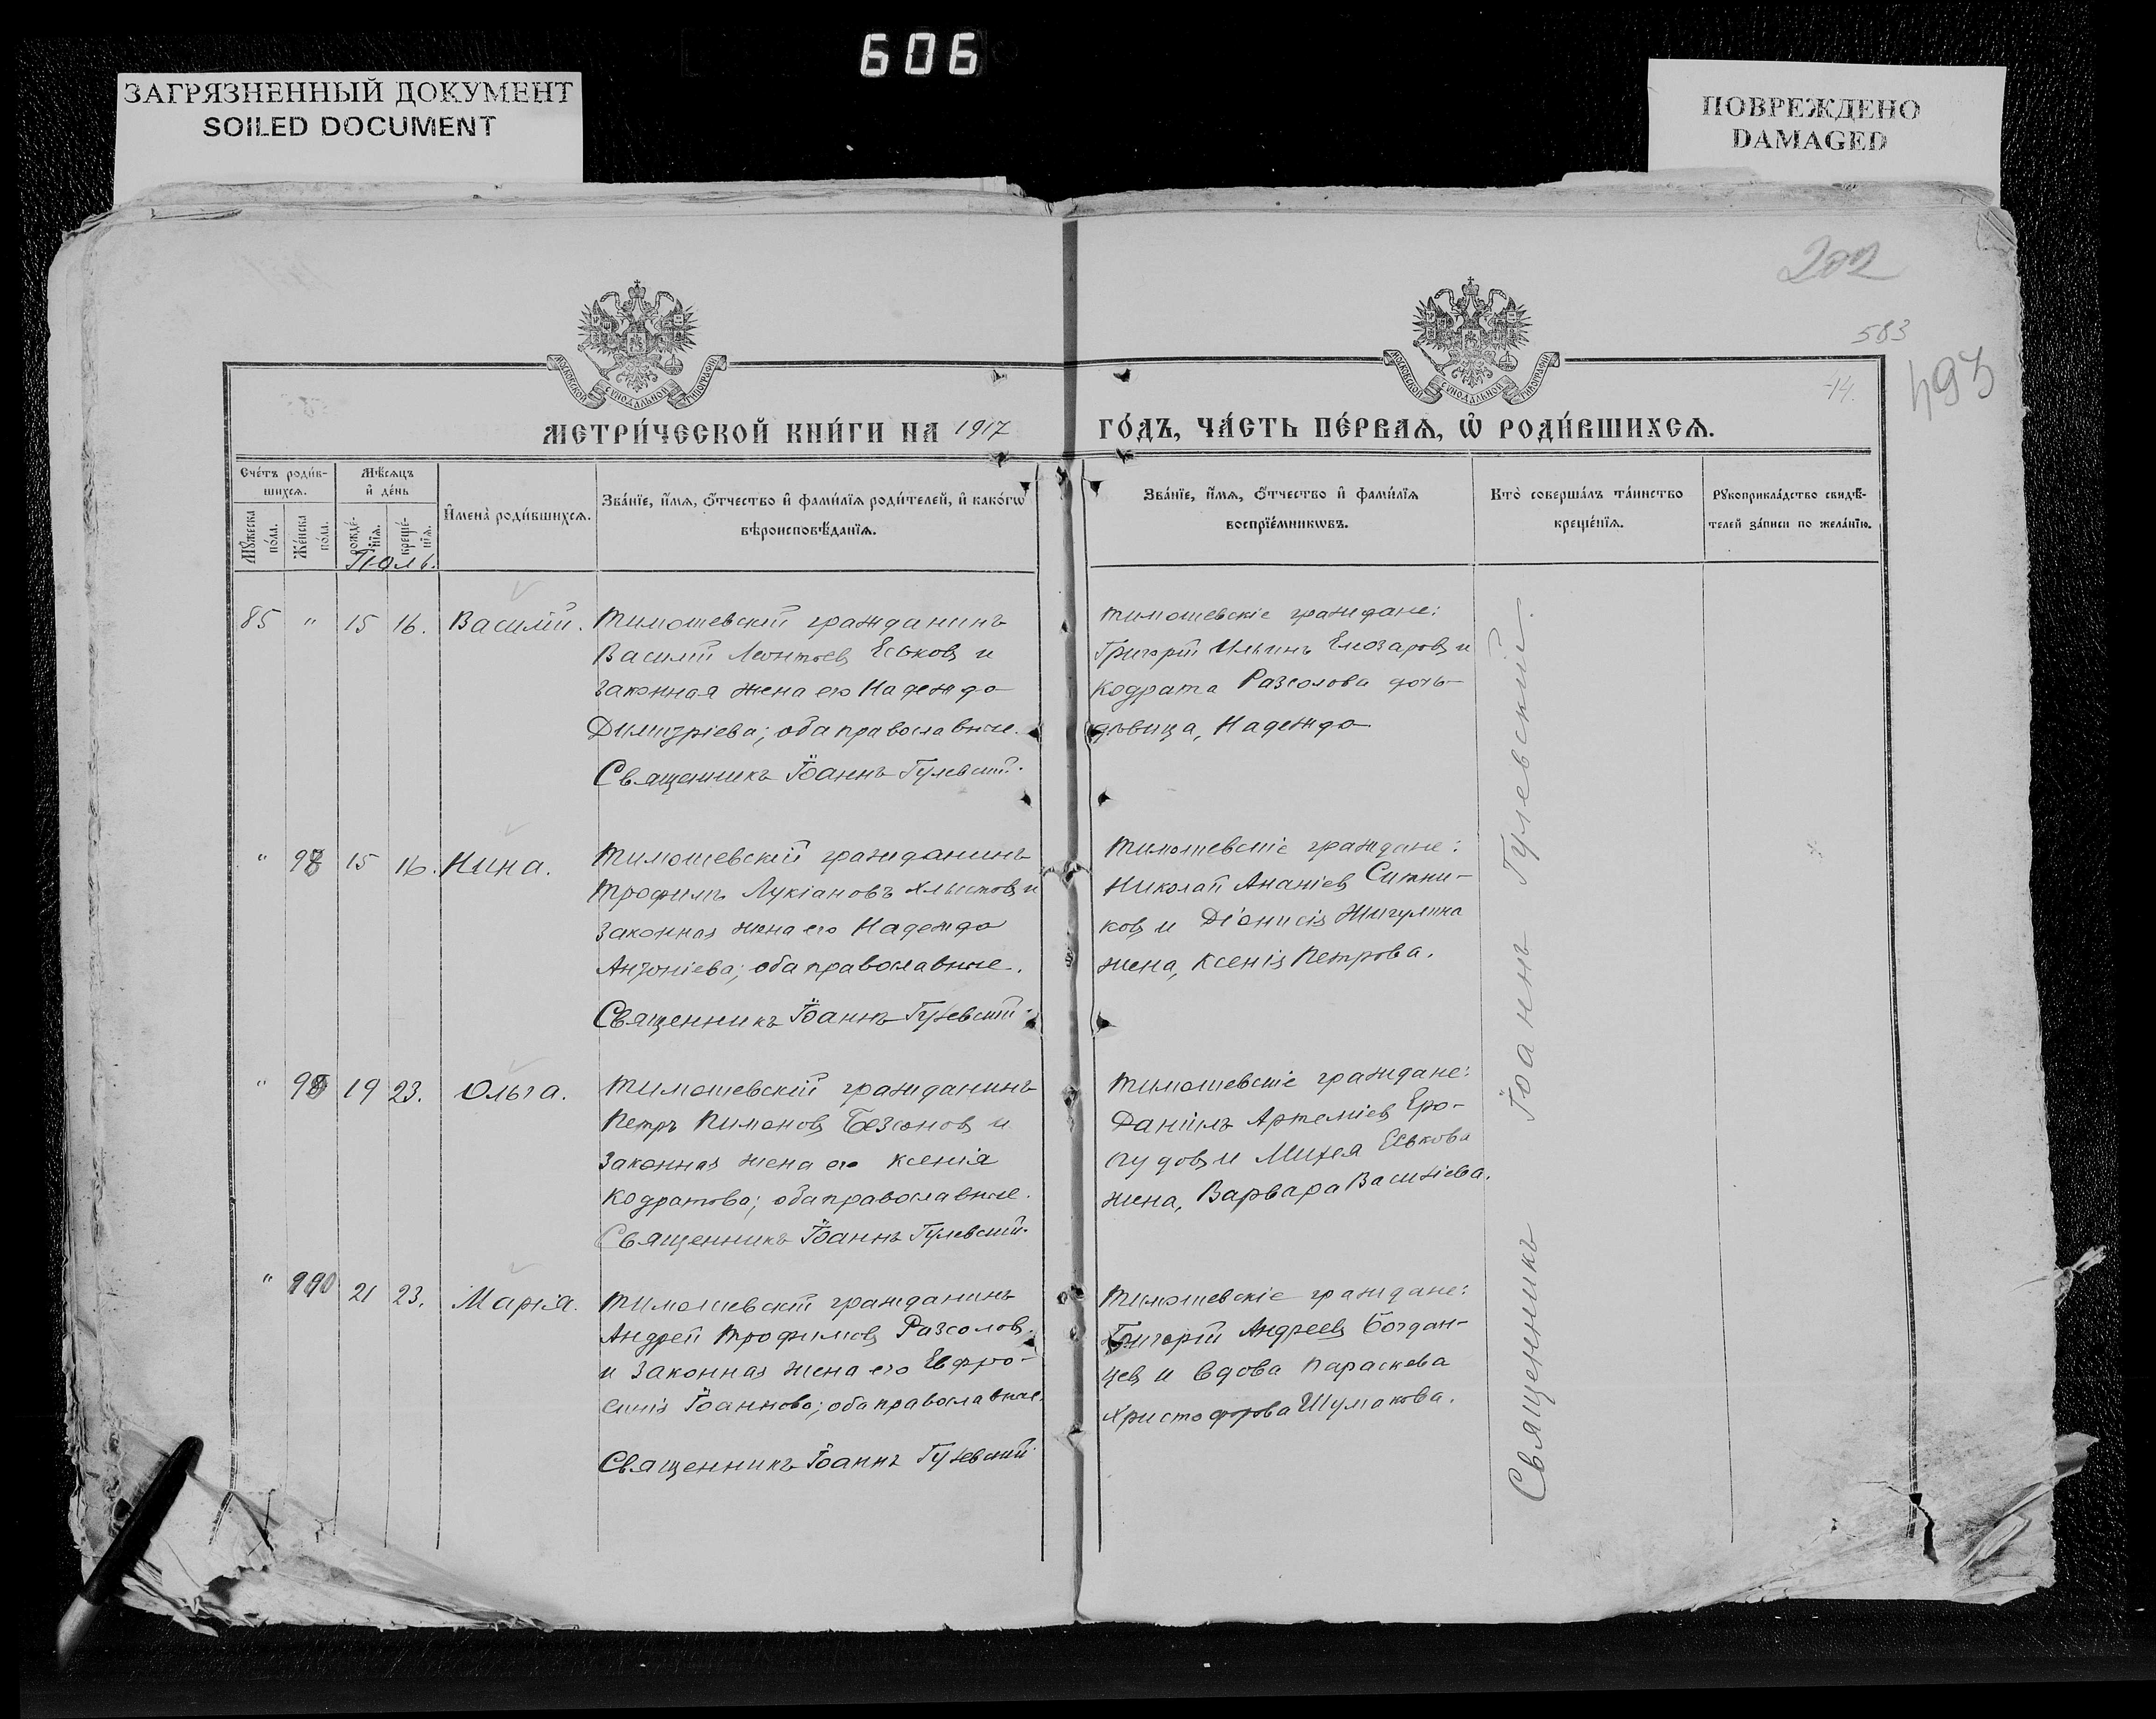 606
ЗАГРЯЗНЕННЫЙ ДОКУМЕНТ
SOILED DOCUMENT
ПОВРЕЖДЕНО
DAMAGED
202
583
493
14.
МОСКОВСКОЙ СѴНОДАЛЬНОЙ ТИПОГРАФІИ
МОСКОВСКОЙ СѴНОДАЛЬНОЙ ТИПОГРАФІИ
МЕТРИ́ЧЕСКОЙ КНИ́ГИ НА 1917 ГО́ДЪ, ЧА́СТЬ ПЕ́РВАЯ, Ѡ҆ РОДИ́ВШИХСЯ.
Сче́тъ роди́в-
шихся.
Мѣ́сяцъ
и҆ де́нь
Мꙋ́жеска по́ла.
Же́нска по́ла.
рожде́-
нїя.
креще́-
нїя.
Іюль.
И҆мена̀ роди́вшихся.
Зва́нїе, и҆́мя, ѻ҆́тчество и҆ фами́лїя роди́телей, и҆ како́гѡ
вѣроисповѣ́данїя.
Зва́нїе, и҆́мя, ѻ҆́тчество и҆ фами́лїя
воспрїе́мникѡвъ.
Кто̀ соверша́лъ та́инство
креще́нїя.
Рꙋкоприкла́дство свидѣ́-
телей за́писи по жела́нїю.
85 " 15 16. Василій. Тимошевскій гражданинъ
Василій Леонтьевъ Еськовъ и
законная жена его Надежда
Димитріева; оба православные.
Священникъ Іоаннъ Гулевскій.
Тимошевскіе граждане:
Григорій Ильинъ Елозаровъ и
Кодрата Разсолова дочь
дѣвица, Надежда
" 98 15 16. Нина. Тимошевскій гражданинъ
Трофимъ Лукіановъ Хлыстовъ и
законная жена его Надежда
Антоніева; оба православные.
Священникъ Іоаннъ Гулевскій.
Тимошевскіе граждане:
Николай Ананіевъ Ситни-
ковъ и Діонисія Жигулина
жена, Ксенія Петрова.
" 19 23. Ольга. Тимошевскій гражданинъ
Петръ Пимоновъ Безсоновъ и
законная жена его Ксенія
Кодратова; оба православные.
Священникъ Іоаннъ Гулевскій.
Тимошевскіе граждане:
Даніилъ Артеміевъ Еро-
гудовъ и Михея Еськова
жена, Варвара Васильева.
" 21 23. Марія. Тимошевскій гражданинъ
Андрей Трофимовъ Разсоловъ
и законная жена его Евфро-
синія Іоаннова; оба православные.
Священникъ Іоаннъ Гулевскій
Тимошевскіе граждане:
Григорій Андреевъ Богдан-
цевъ и вдова Параскева
Христофорова Шумакова.
Священникъ Іоаннъ Гулевскій.